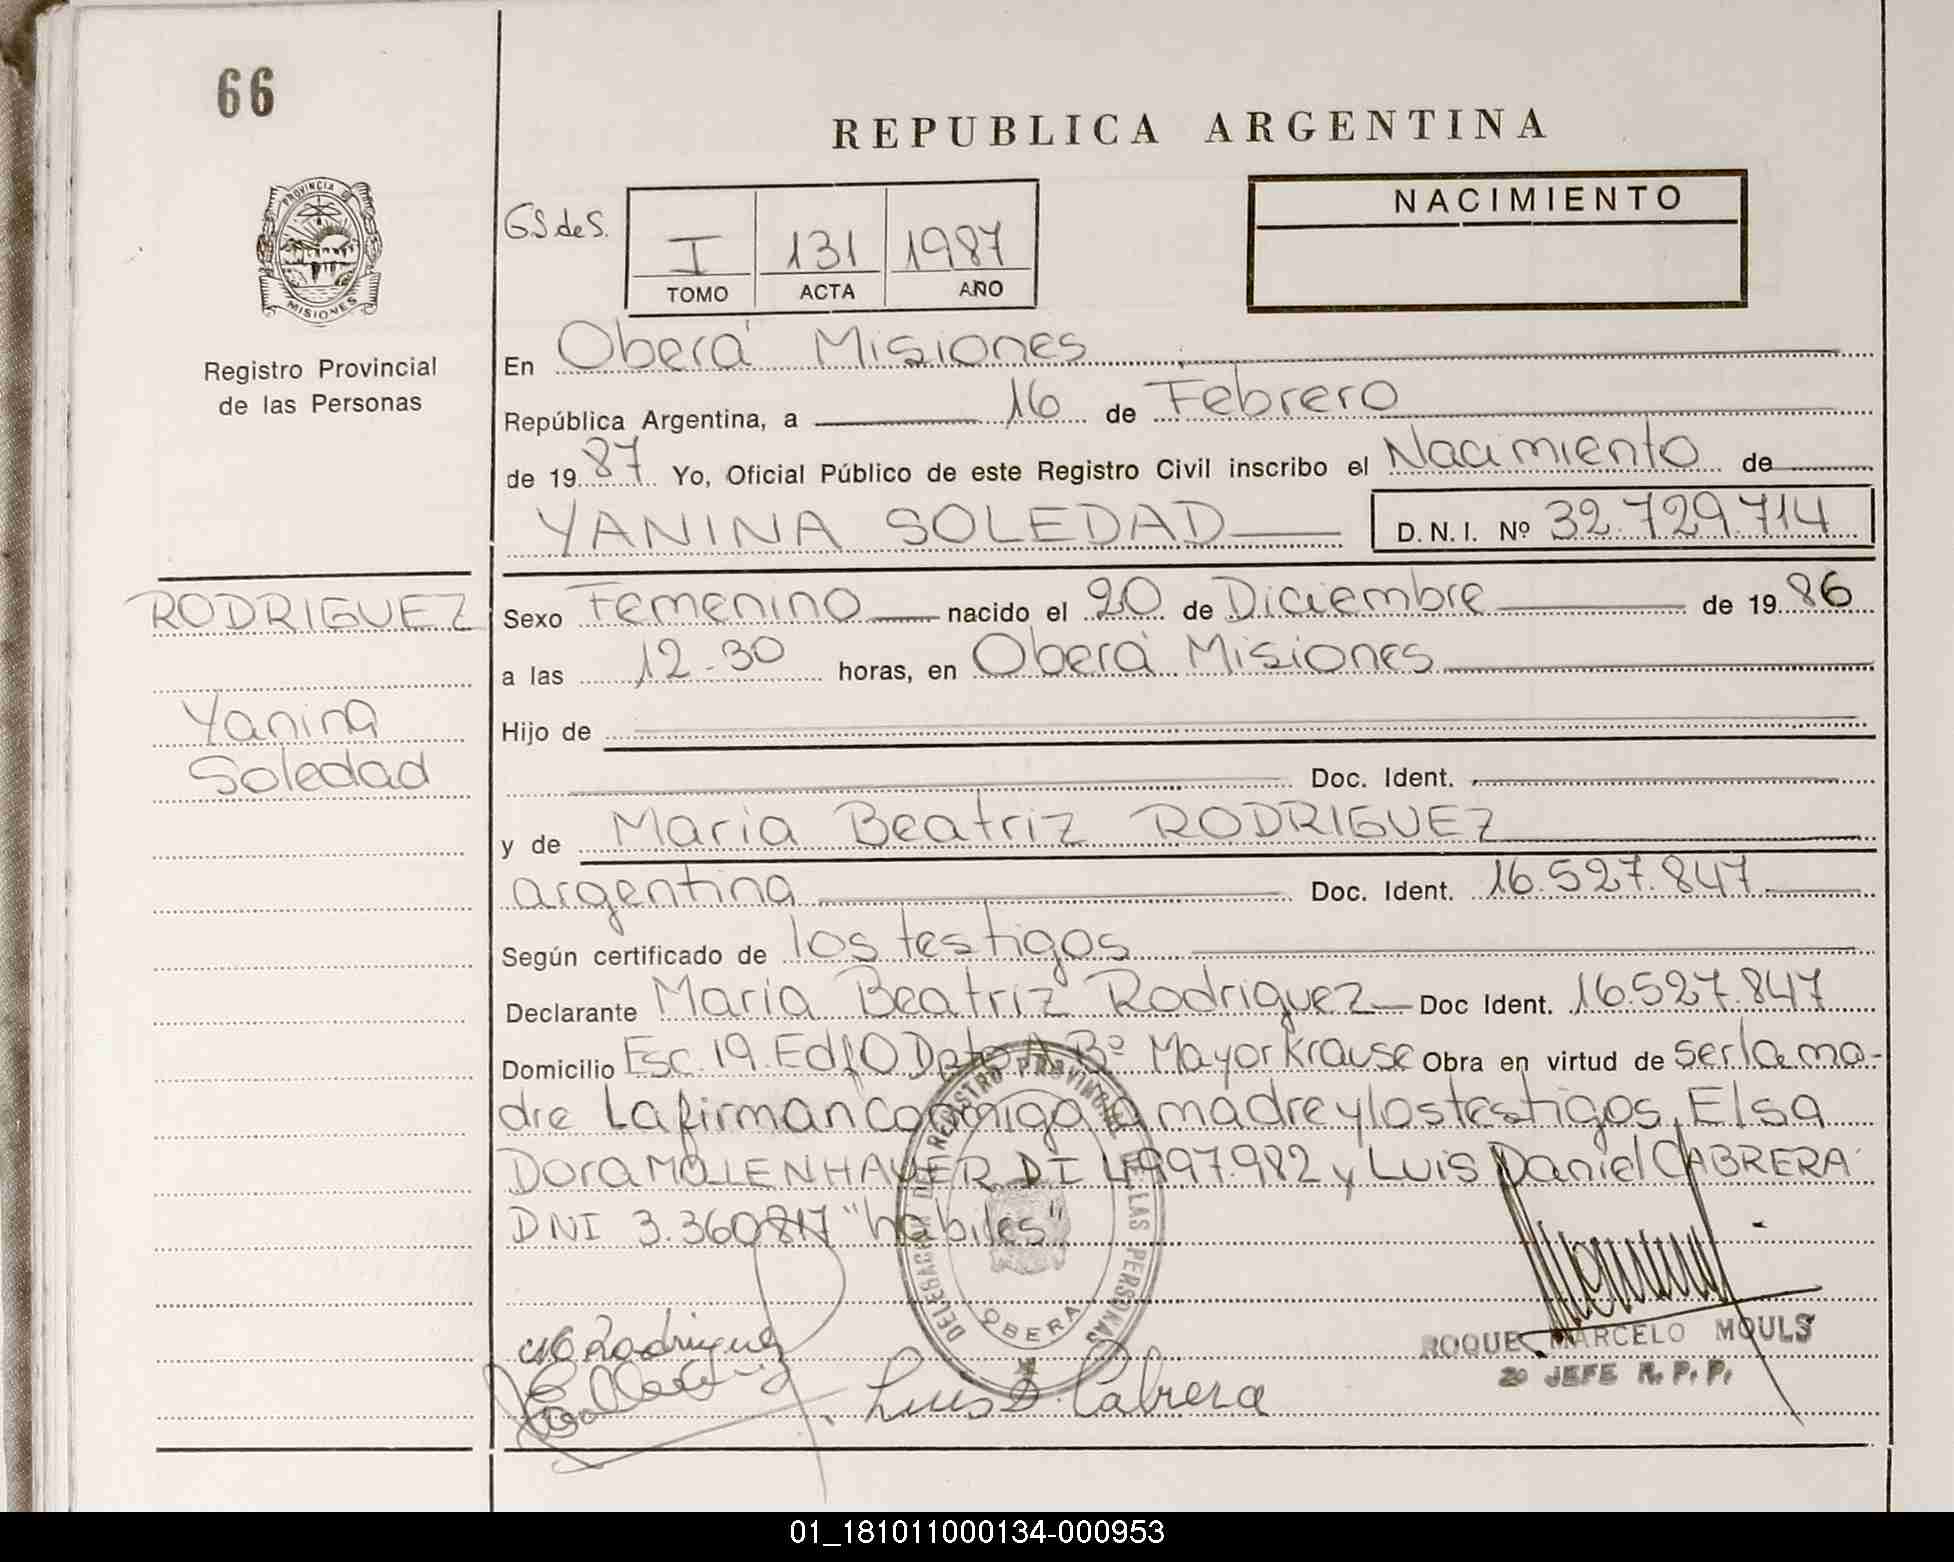 66
REPUBLICA ARGENTINA
PROVINCIA DE
MISIONES
Registro Provincial
de las Personas
GS de S.
I 131 1987
TOMO ACTA AÑO
NACIMIENTO
En Oberá Misiones
República Argentina, a 16 de Febrero
de 1987 Yo, Oficial Público de este Registro Civil inscribo el Nacimiento de
YANINA SOLEDAD D.N.I. Nº 32.729.714
RODRIGUEZ
Yanina
Soledad
Sexo Femenino nacido el 20 de Diciembre de 1986
a las 12-30 horas, en Oberá Misiones
Hijo de
Doc. Ident.
y de Maria Beatriz RODRIGUEZ
argentina Doc. Ident. 16.527.847
Según certificado de los testigos
Declarante Maria Beatriz Rodriguez Doc Ident. 16.527.847
Domicilio Esc. 19. Edf O Dpto A Bº Mayor Krause Obra en virtud de ser la ma-
dre La firman conmigo la madre y los testigos, Elsa
Dora MOLLENHAUER DI 4.997.982 y Luis Daniel CABRERA
DNI 3.360817 "habiles"
DELEGACION DEL REGISTRO PROVINCIAL DE LAS PERSONAS
OBERA
MBRodriguez
Luis D. Cabrera
ROQUE MARCELO MOULS
2º JEFE R.P.P.
01_181011000134-000953